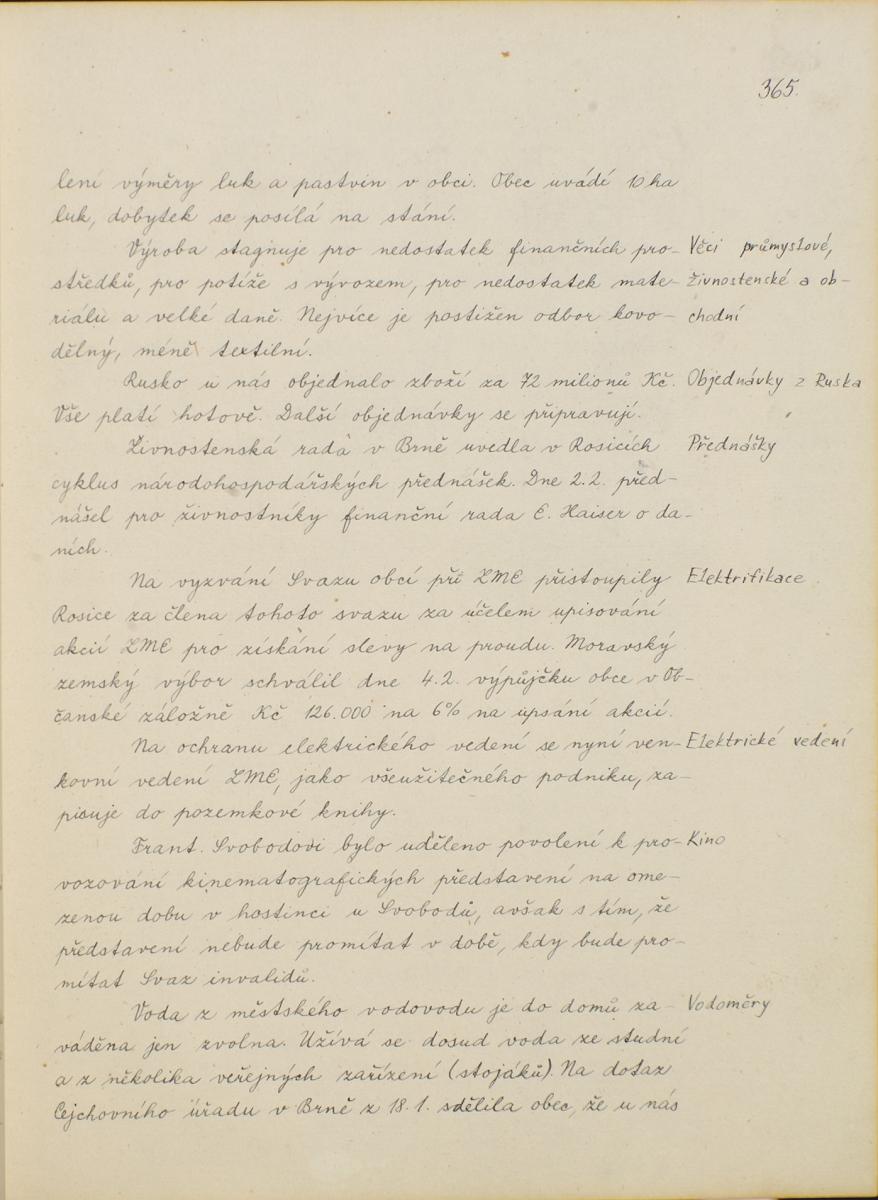 365.
lení výměry luk a pastvin v obci. Obec uvádí 10 ha
luk, dobytek se posílá na stání.
Výroba stagnuje pro nedostatek finančních pro- Věci průmyslové,
středků, pro potíže s vývozem, pro nedostatek mate- živnostenské a ob-
riálu a velké daně. Nejvíce je postižen odbor kovo- chodní
dělný, méně textilní.
Rusko u nás objednalo zboží za 72 milionů Kč. Objednávky z Ruska
Vše platí hotově. Další objednávky se připravují.
Živnostenská rada v Brně uvedla v Rosicích Přednášky
cyklus národohospodářských přednášek. Dne 2.2. před-
nášel pro živnostníky finanční rada E. Haiser o da-
ních.
Na vyzvání Svazu obcí při ZME přistoupily Elektrifikace
Rosice za člena tohoto svazu za účelem upisování
akcií ZME pro získání slevy na proudu. Moravský
zemský výbor schválil dne 4.2. výpůjčku obce v Ob-
čanské záložně Kč 126.000 na 6% na upsání akcií.
Na ochranu elektrického vedení se nyní ven- Elektrické vedení
kovní vedení ZME, jako všeužitečného podniku, za-
pisuje do pozemkové knihy.
Frant. Svobodovi bylo uděleno povolení k pro- Kino
vozování kinematografických představení na ome-
zenou dobu v hostinci u Svobodů, avšak s tím, že
představení nebude promítat v době, kdy bude pro-
mítat Svaz invalidů.
Voda z městského vodovodu je do domů za- Vodoměry
váděna jen zvolna. Užívá se dosud voda ze studní
a z několika veřejných zařízení (stojáků). Na dotaz
Cejchovního úřadu v Brně z 18.1. sdělila obec, že u nás